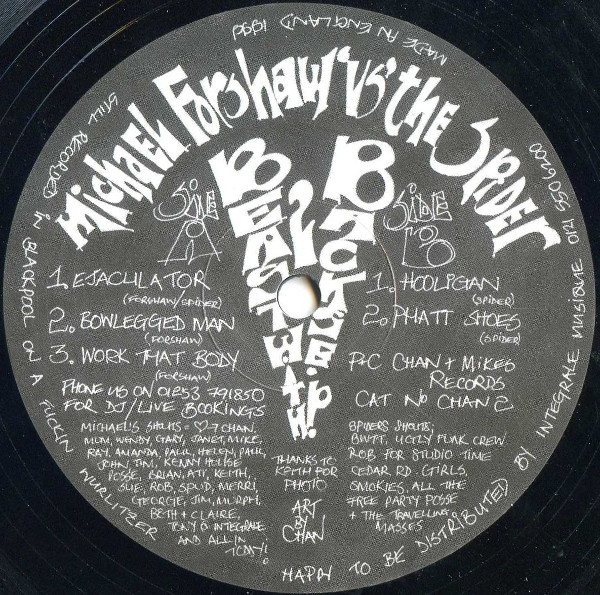 MADE IN ENGLAND 1998
MICHAEL FORSHAW "VS" THE SPIDER
BEAST WITH
2
BACKS E.P.
SIDE
A
1. EJACULATOR
(FORSHAW/SPIDER)
2. BOWLEGGED MAN
(FORSHAW)
3. WORK THAT BODY
(FORSHAW)
PHONE US ON 01253 791850
FOR DJ/LIVE BOOKINGS
MICHAEL'S SHOUTS = ♡→ CHAN,
MUM, WENDY, GARY, JANET, MIKE,
RAY, AMANDA, PAUL, HELEN, PAUL,
JOHN, TIM, KENNY HOUSE
POSSE, BRIAN, ATI, KEITH,
SUE, ROB, SPUD, MERRI,
GEORGIE, JIM, MURPH,
BETH + CLAIRE,
TONY @ INTEGRALE
AND ALL IN
TOMY!
THANKS TO
KEITH FOR
PHOTO
ART
BY
CHAN
SIDE
B
1. HOOLIGAN
(SPIDER)
2. PHATT SHOES
(SPIDER)
P+C CHAN + MIKES
RECORDS
CAT NO CHAN 2
SPIDERS SHOUTS;
BWPT, UGLY FUNK CREW
ROB FOR STUDIO TIME
CEDAR RD. GIRLS,
SMOKIES, ALL THE
FREE PARTY POSSE
+ THE TRAVELLING
MASSES
STILL RECORDED IN BLACKPOOL ON A FUCKIN WURLITZER
HAPPY TO BE DISTRIBUTED BY INTEGRALE MUSIQUE 0171 550 6200